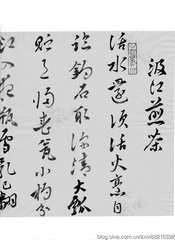 汲江煎茶
活水還須活火烹自
臨釣石取深清大瓢
貯月歸春甕小杓分
江入夜瓶雪乳已翻